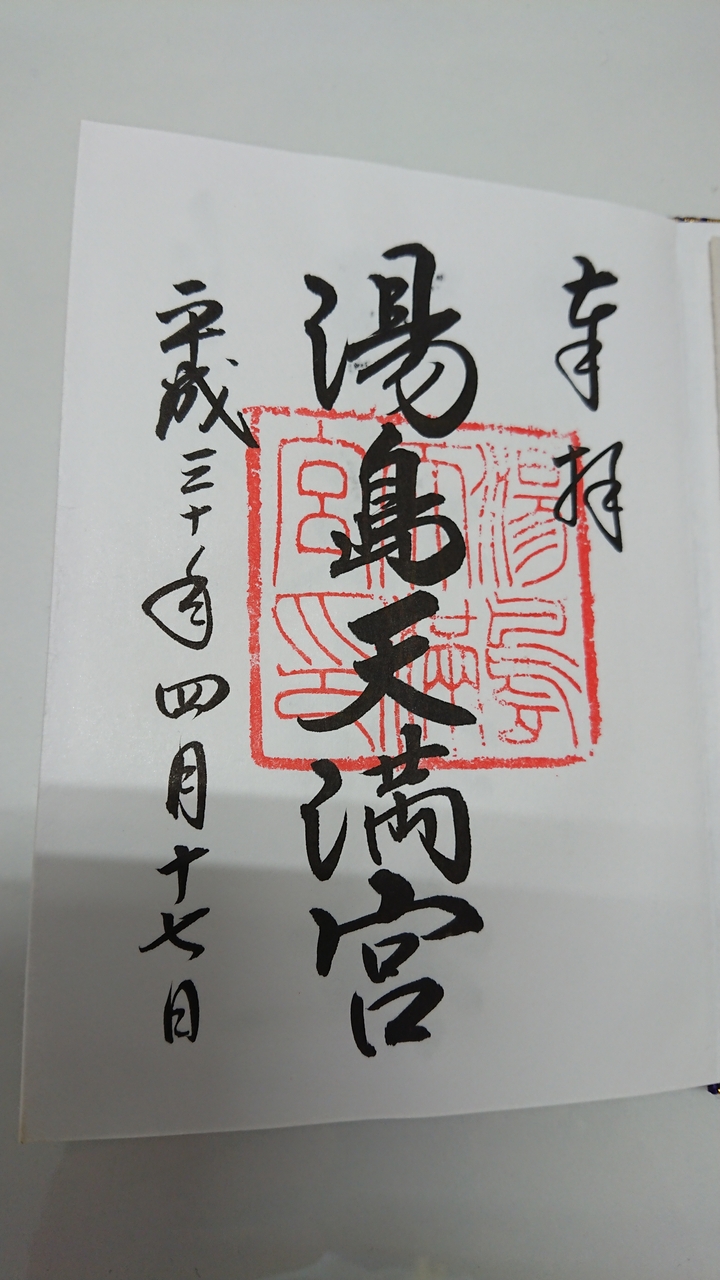 奉拝
湯島天満宮
湯島天満宮印
平成三十年四月十七日